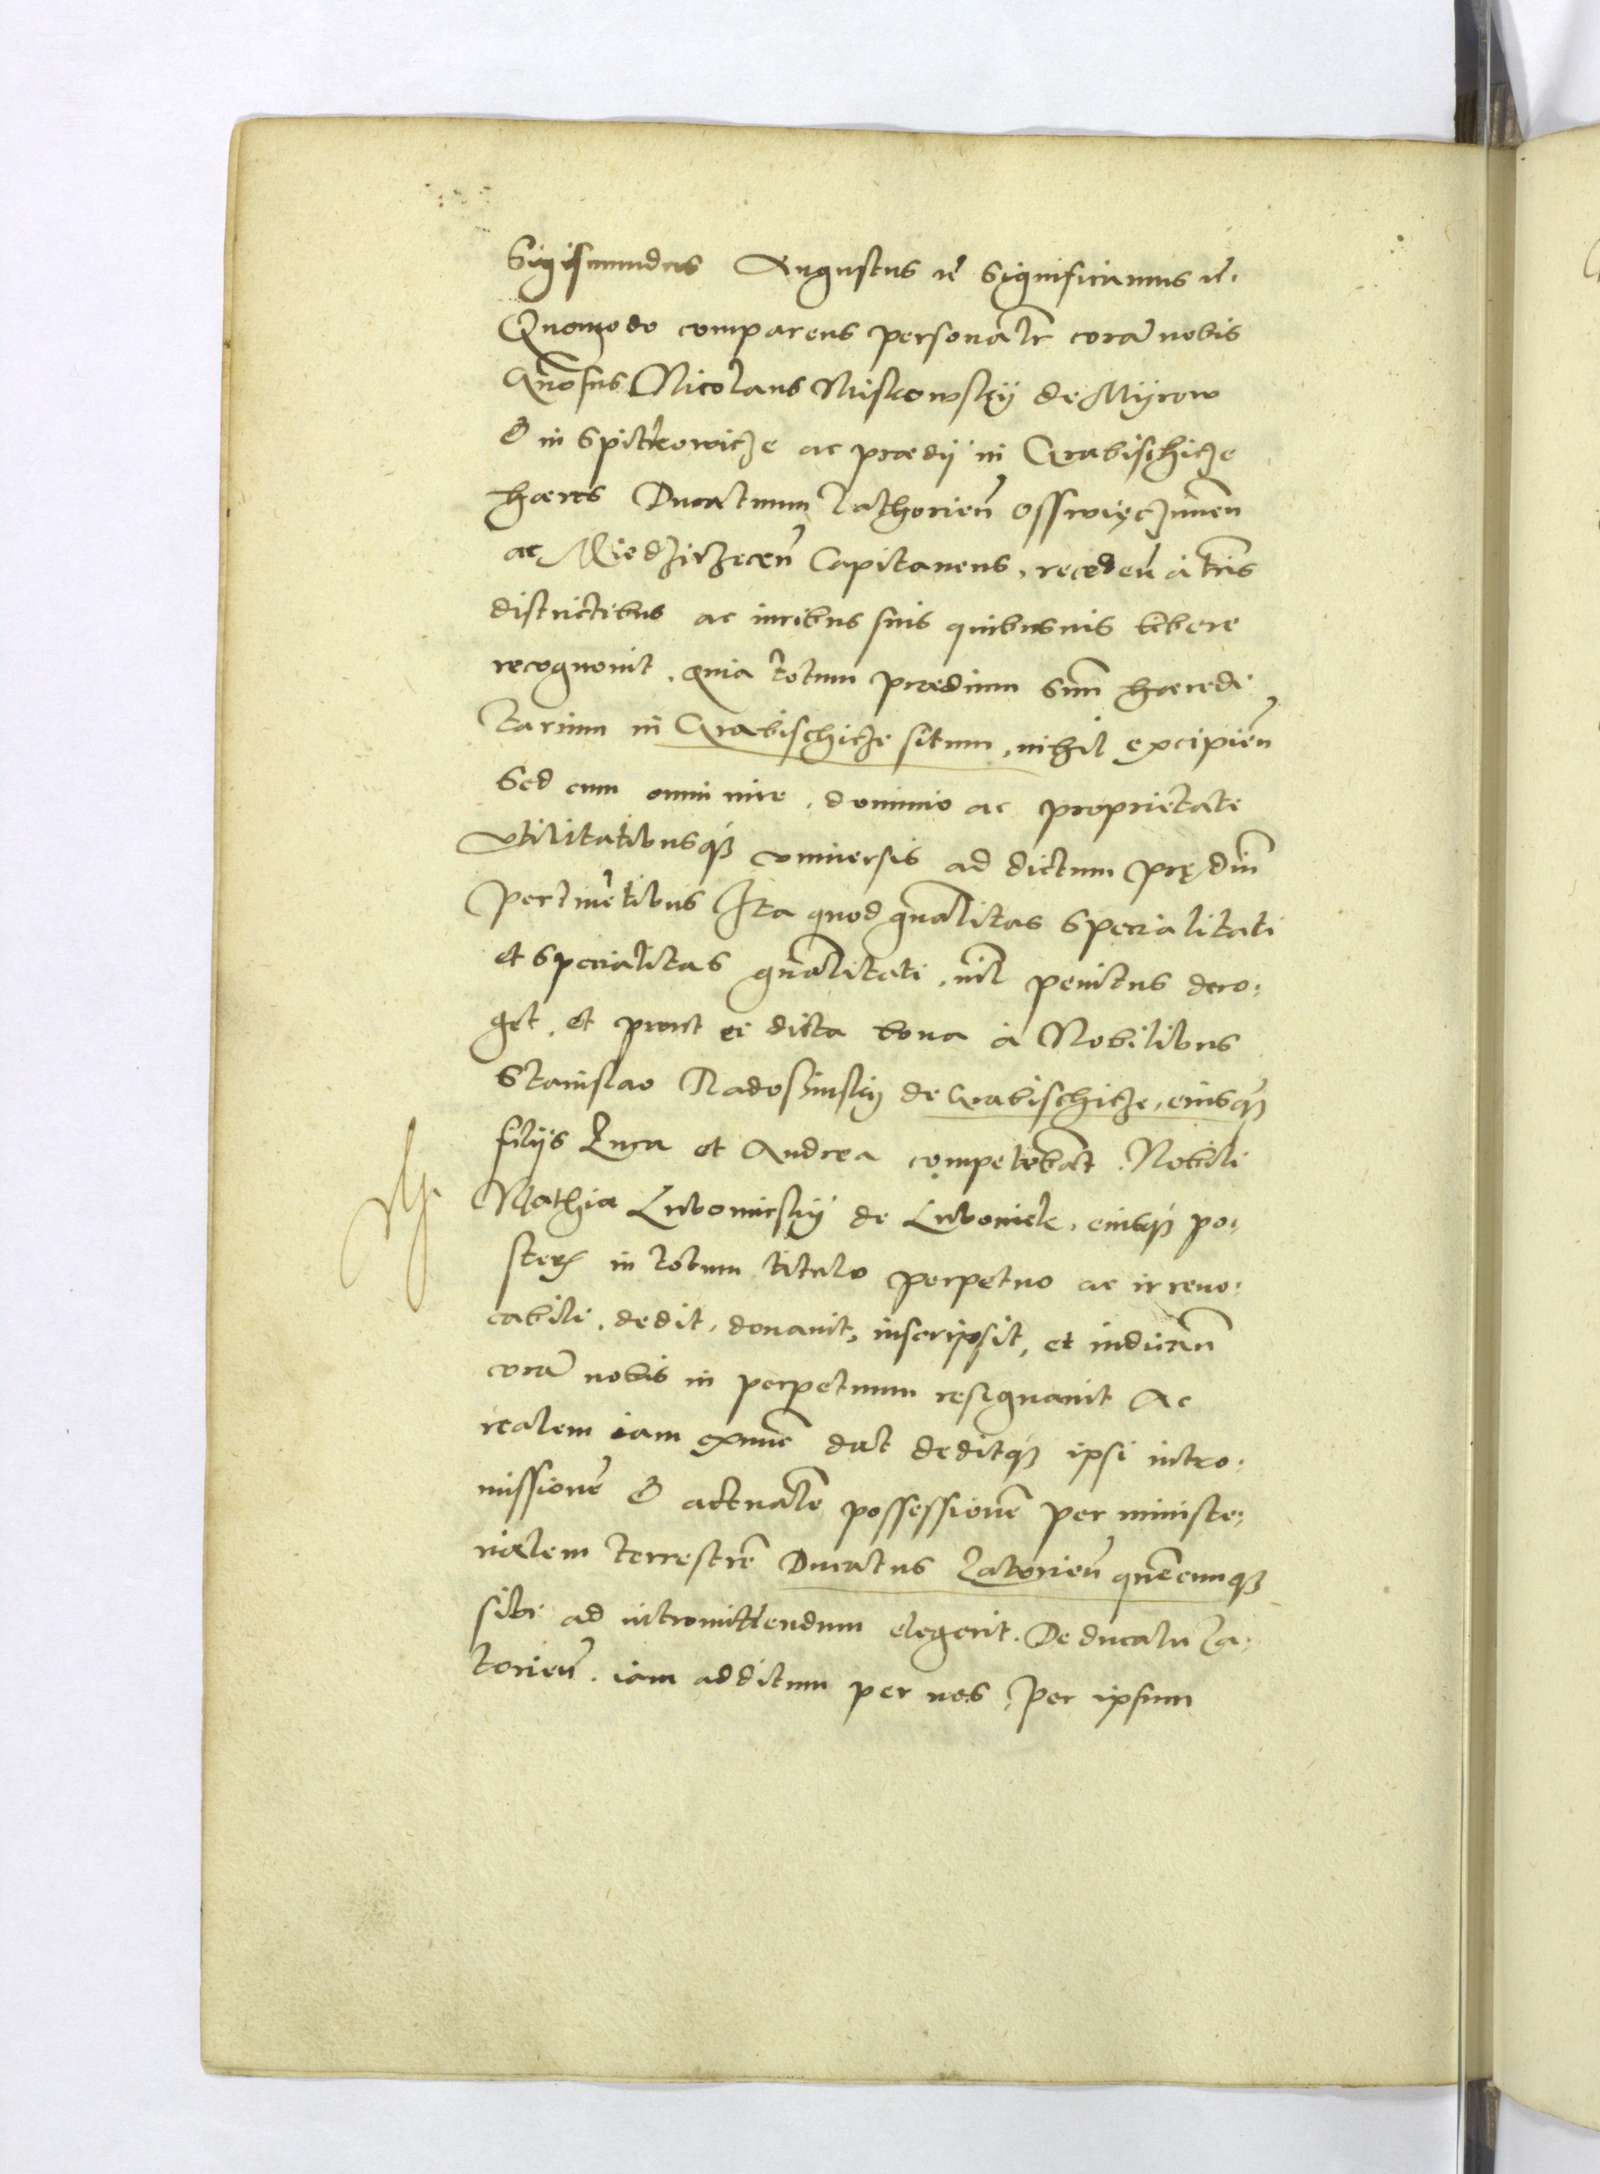 Sigismundus Augustus rẽ Significamus rẽ.
Quomodo comparens personalr̃ corã nobis
Gñosus Nicolaus Miskowskÿ de Mÿrow
& in Spitkowicze ac prædij in Grabischicze
hæres Ducatuum Zathorieñ Osswięczimeñ
ac Capitaneus, recedeñ à tr̃is
districtibus ac iuribus suis quibusuis libere
recognouit, quia totum prædium suum hæredi
tarium in Grabischicze situm, nihil excipieñ
Sed cum omni iure, dominio ac proprietate
vtilitatibusq; vniuersis ad dictum prędiũ
pertinẽtibus Ita quod gñalitas specialitati
et specialitas gñalitati, nil penitus dero:
get, et prout ei dicta bona à Nobilibus
Stanislao Radoszinskÿ de Grabischicze, eiusq;
filijs Luca et Andrea competebãt. Nobili
Mathiæ Lubomirskÿ de Lubomirz, eiusq; po:
steris in totum titulo perpetuo ac irreuo:
cabili, dedit, donauit, inscripsit, et
corã nobis in perpetuum resignauit Ac
realem iam exnunc dat deditq; ipsi intro:
missionẽ & actualẽ possessionẽ per ministe:
rialem terrestrẽ Ducatus Zatorieñ quẽcunq;
sibi ad intromittendum elegerit. De ducatu Za:
torieñ. iam additum per nos, per ipsum